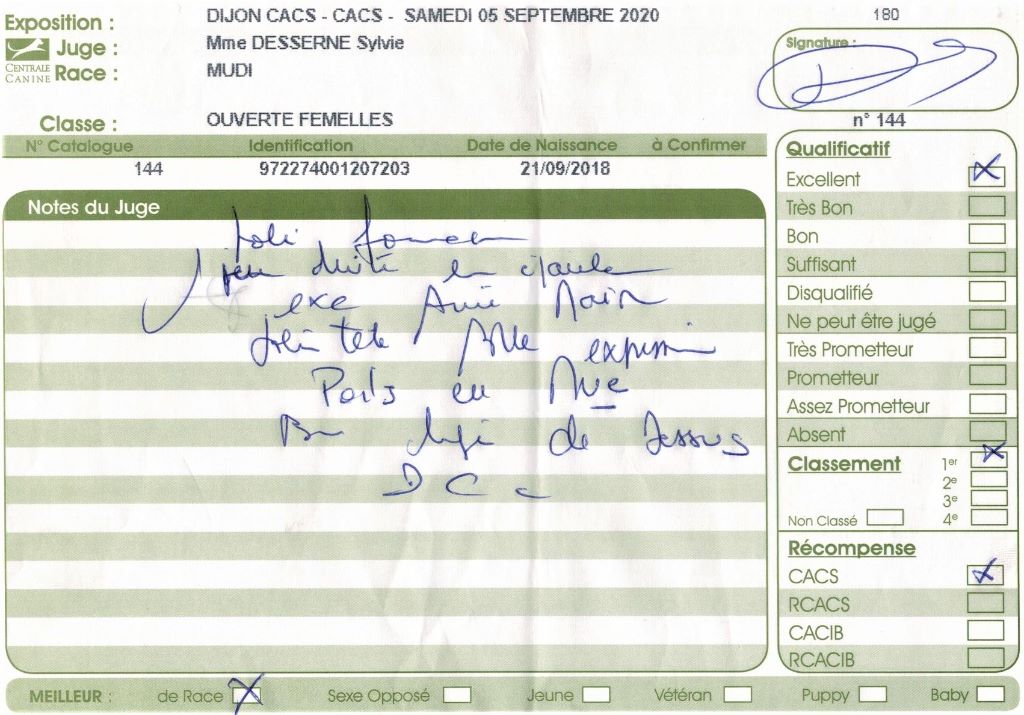 Exposition : DIJON CACS - CACS - SAMEDI 05 SEPTEMBRE 2020 180
Juge : Mme DESSERNE Sylvie
CENTRALE CANINE
Race : MUDI
Signature :
Classe : OUVERTE FEMELLES
n° 144
N° Catalogue Identification Date de Naissance à Confirmer
144 972274001207203 21/09/2018
Notes du Juge
Joli
peu droite en épaule
exc
Jolie tete Belle expression
Poils en
Bn de dessus
D C c
Qualificatif
Excellent
Très Bon
Bon
Suffisant
Disqualifié
Ne peut être jugé
Très Prometteur
Prometteur
Assez Prometteur
Absent
Classement 1er
2e
3e
Non Classé 4e
Récompense
CACS
RCACS
CACIB
RCACIB
MEILLEUR : de Race Sexe Opposé Jeune Vétéran Puppy Baby